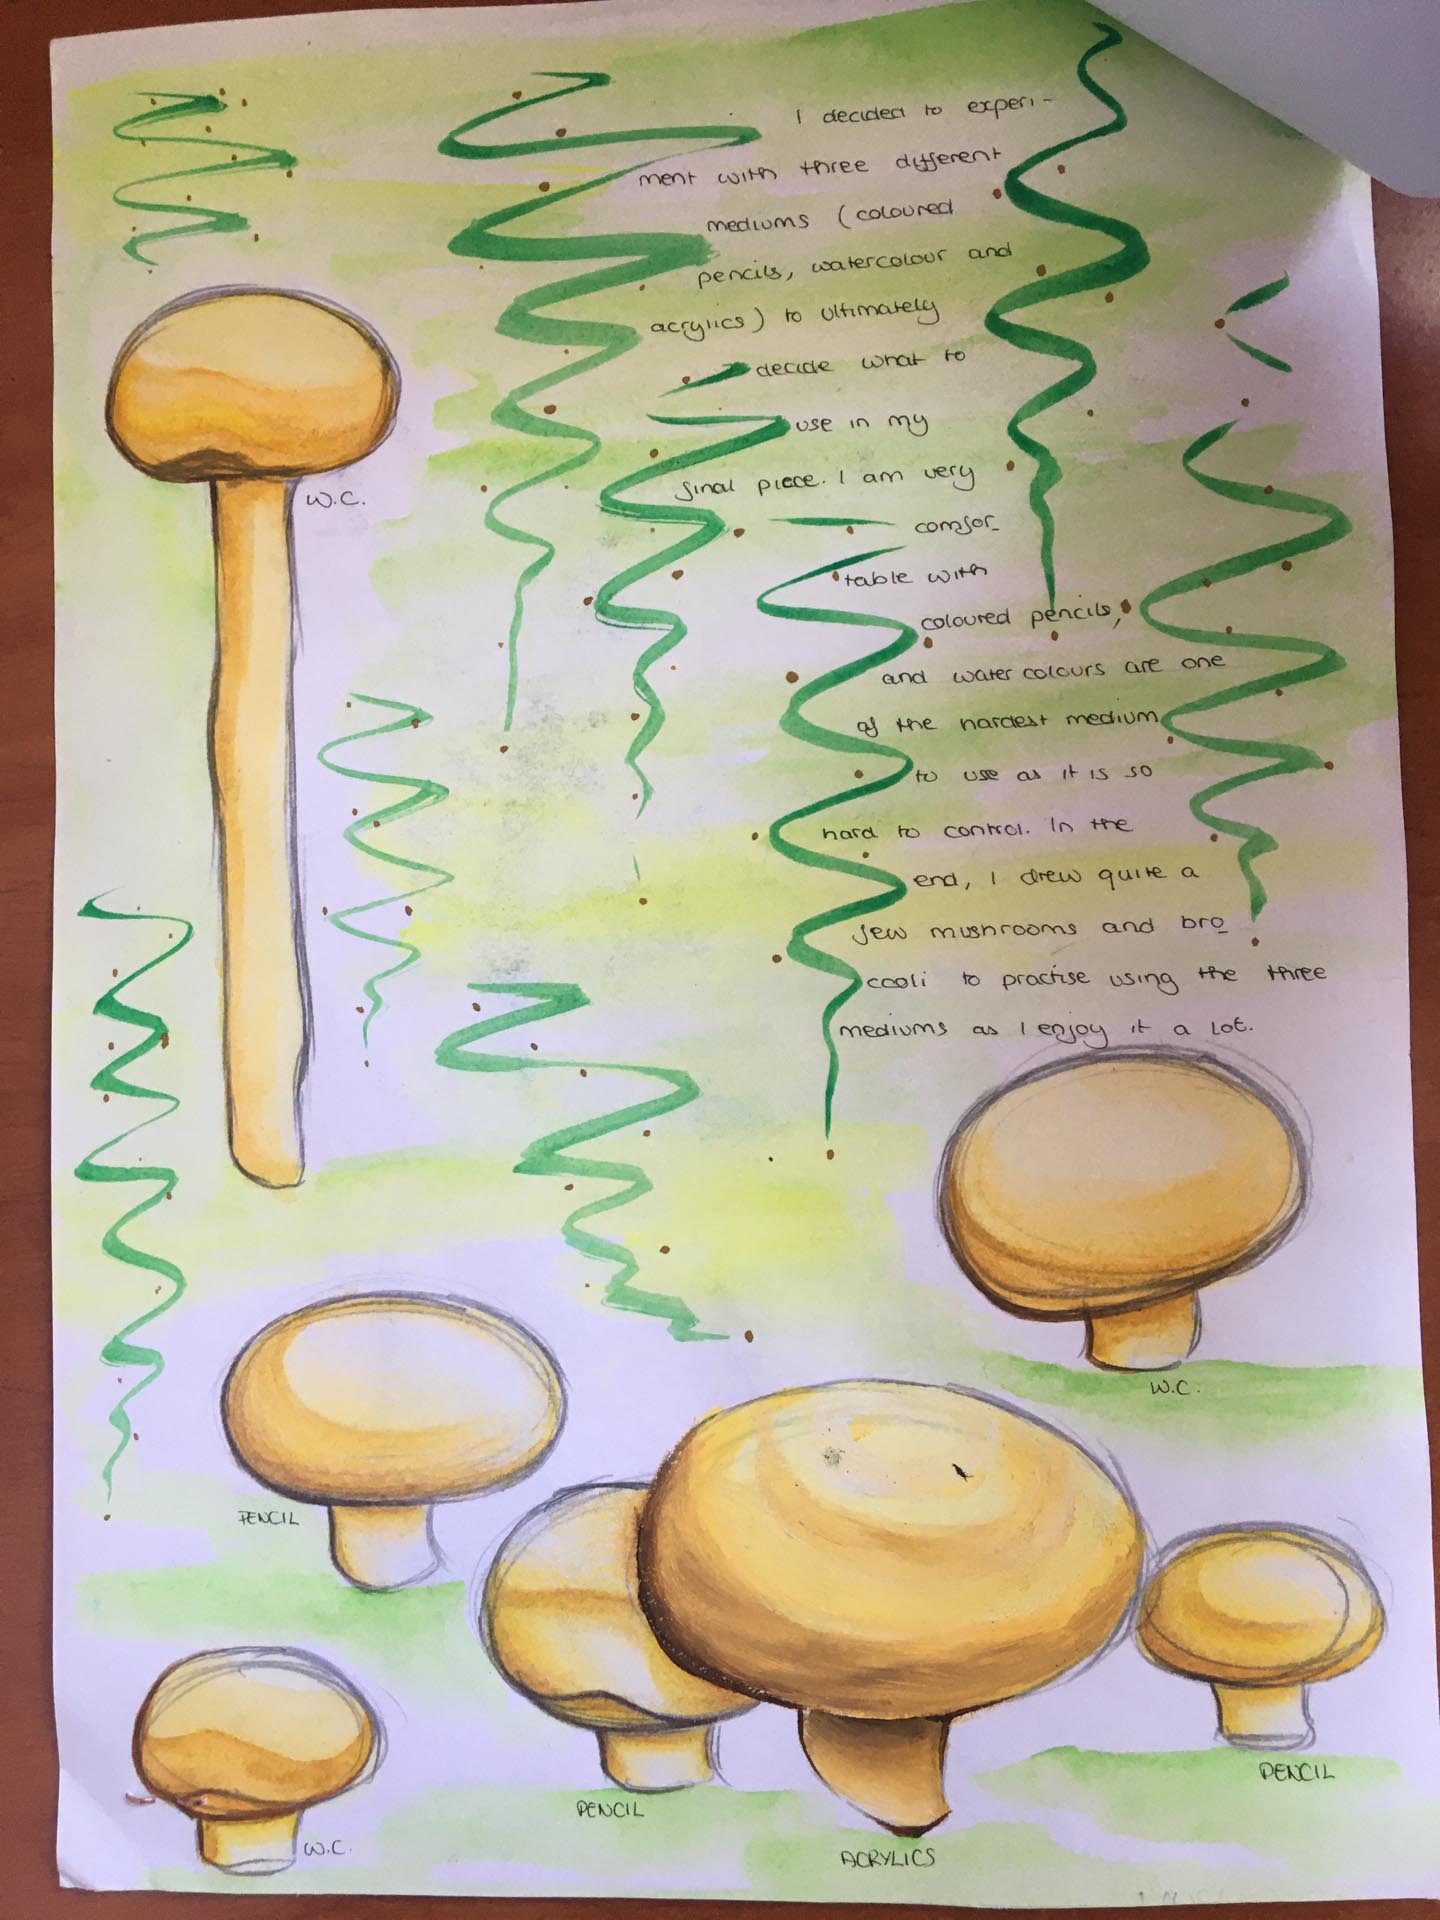 I decided to experi-
ment with three different
mediums (coloured
pencils, watercolour and
acrylics) to ultimately
decide what to
use in my
final piece. I am very
comfor-
table with
coloured pencils,
and watercolours are one
of the hardest medium
to use as it is so
hard to control. In the
end, I drew quite a
few mushrooms and bro-
ccoli to practise using the three
mediums as I enjoy it a lot.
W.C.
W.C.
PENCIL
PENCIL
PENCIL
W.C.
ACRYLICS